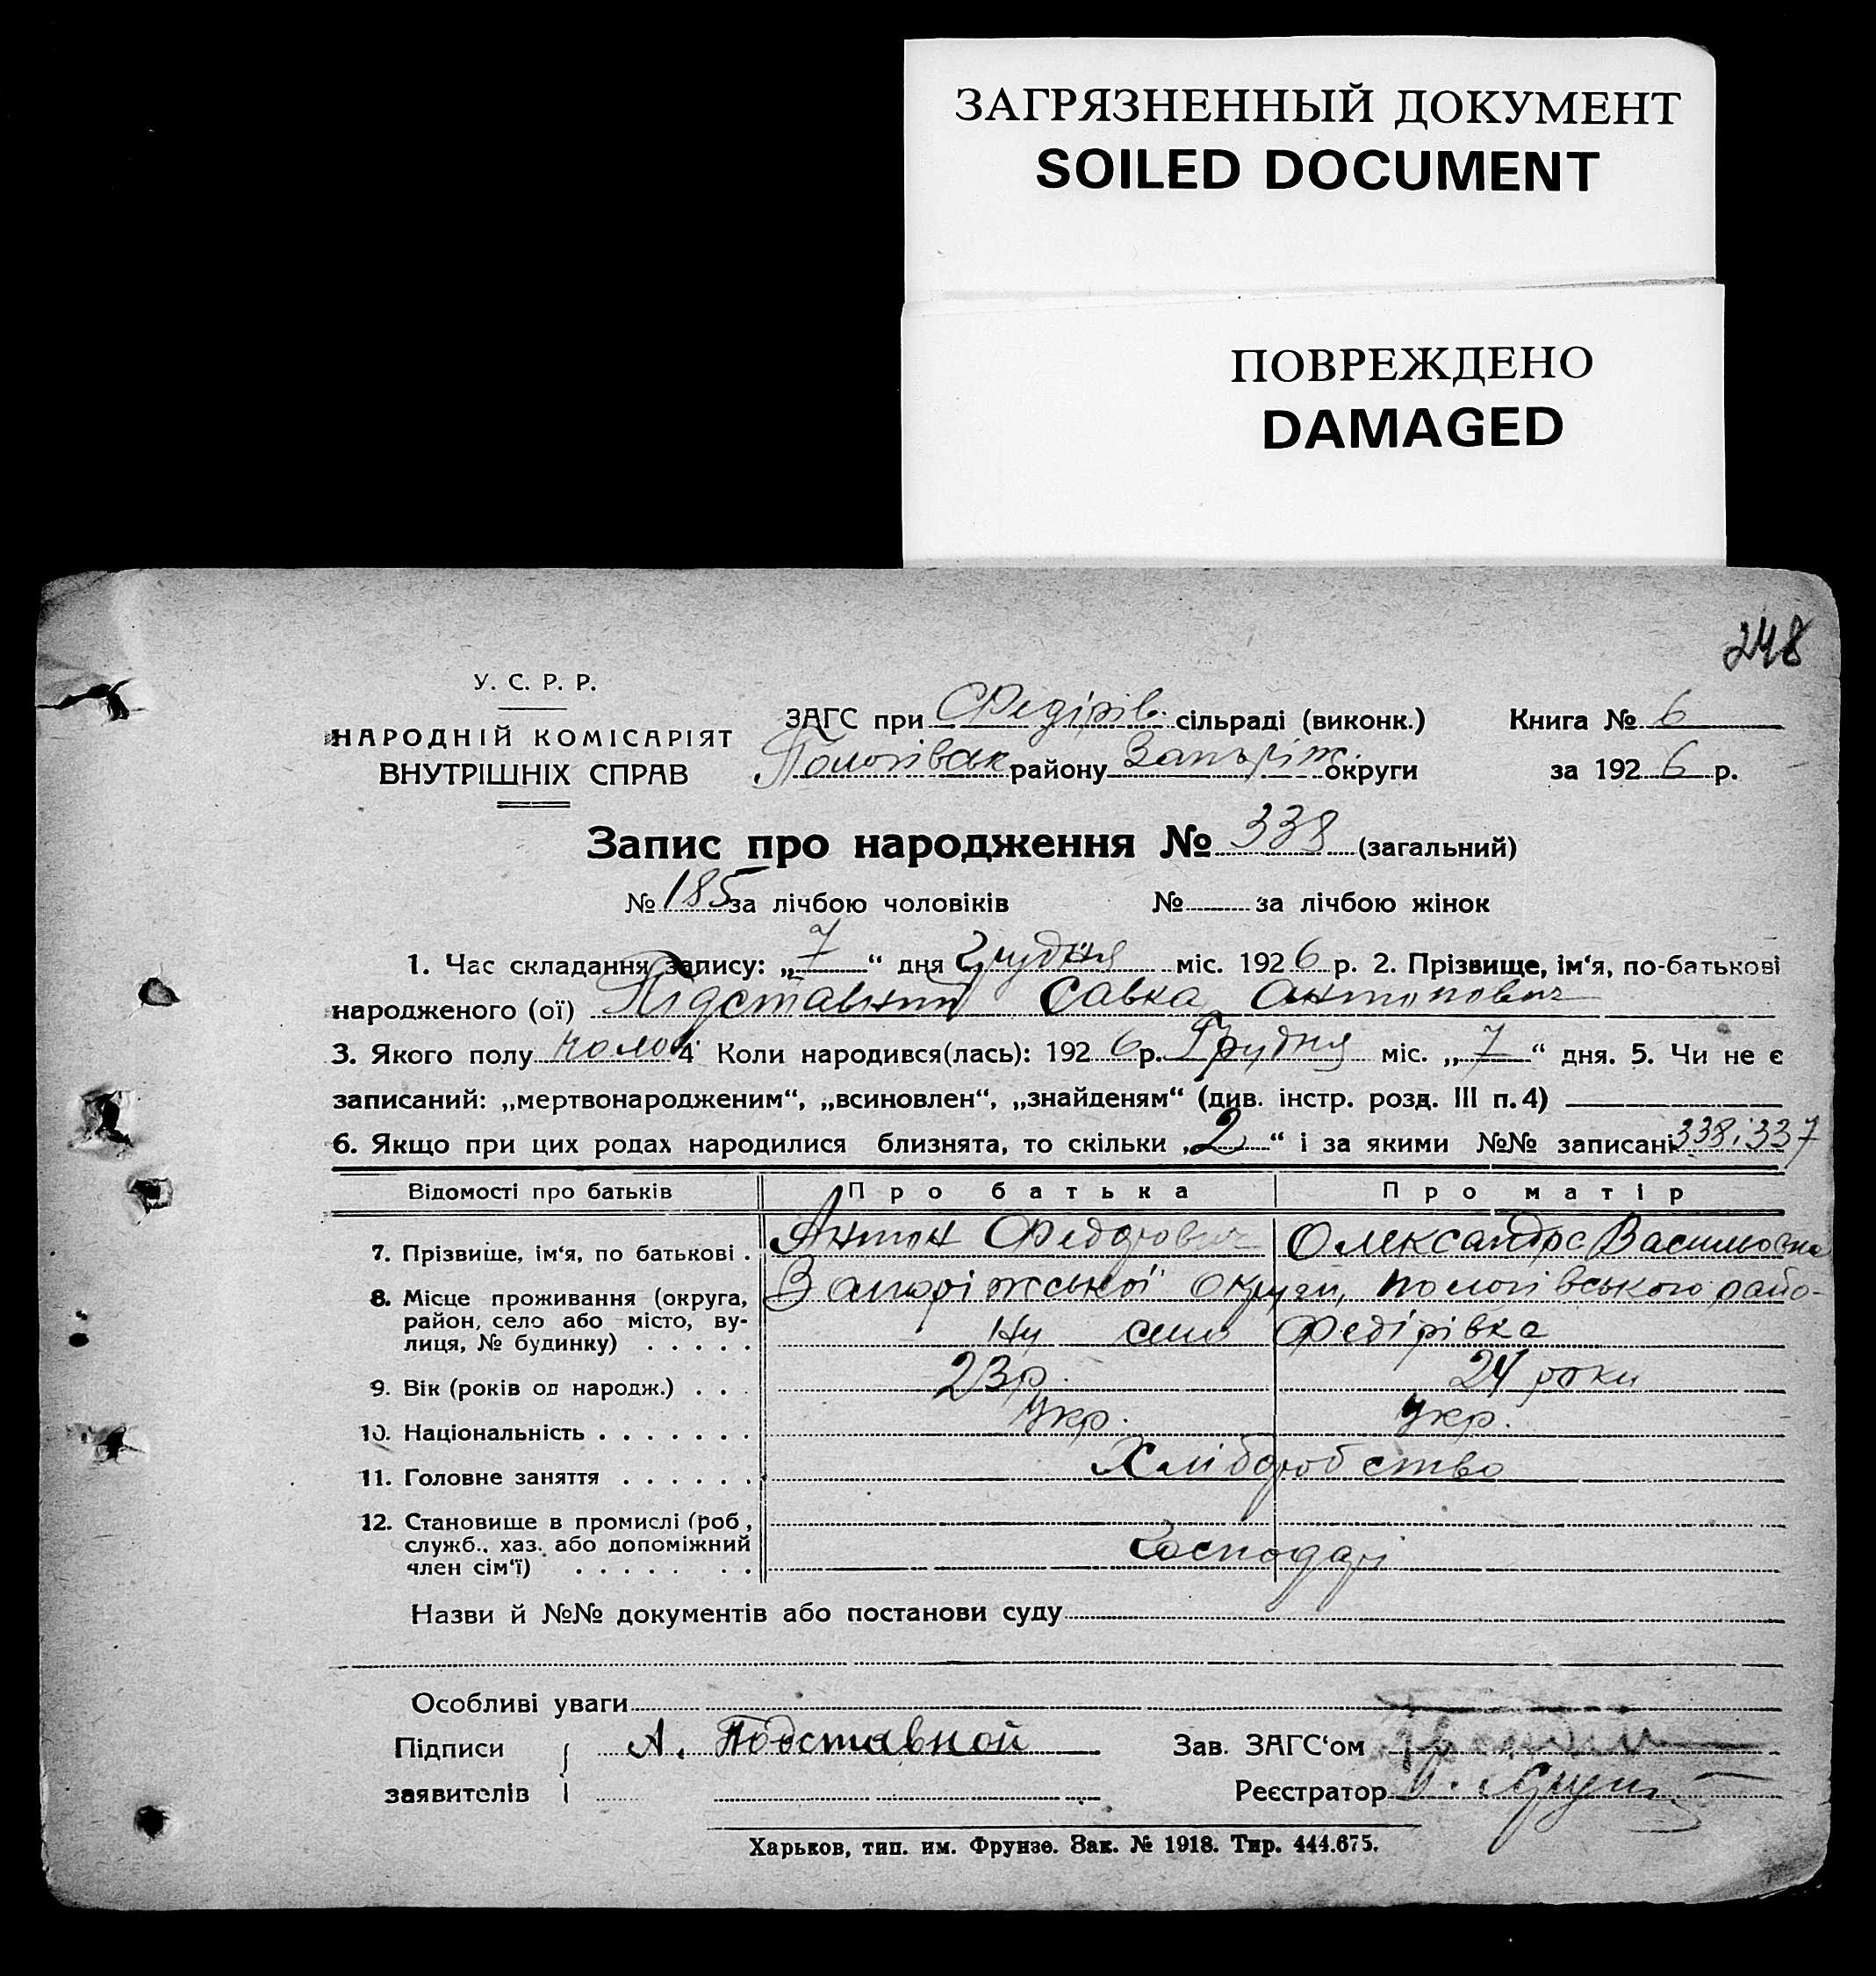 ЗАГРЯЗНЕННЫЙ ДОКУМЕНТ
SOILED DOCUMENT
ПОВРЕЖДЕНО
DAMAGED
248
У. С. Р. Р.
НАРОДНІЙ КОМІСАРІЯТ
ВНУТРІШНІХ СПРАВ
ЗАГС при Федірів. сільраді (виконк.)
Пологівськ району Запоріж. округи
Книга № 6
за 1926 р.
Запис про народження № 338 (загальний)
№ 185 за лічбою чоловіків № за лічбою жінок
1. Час складання запису: „7“ дня Грудня міс. 1926 р. 2. Прізвище, ім‘я, по-батькові
народженого (ої) Підставний Савка Антонович
3. Якого полу чолов 4 Коли народився(лась): 1926 р. Грудня міс. „7“ дня. 5. Чи не є
записаний: „мертвонародженим“, „всиновлен“, „знайденям“ (див. інстр. розд. III п. 4)
6. Якщо при цих родах народилися близнята, то скільки „2“ і за якими №№ записані 338 і 337
Відомості про батьків Про батька Про матір
7. Прізвище, ім‘я, по батькові . Антон Федорович Олександра Васильовна
8. Місце проживання (округа, район, село або місто, вулиця, № будинку) . . . . . Запоріжської округи, Пологівського райо-
ну село Федірівка
9. Вік (років од народж.) . . . 23 р. 24 роки
10. Національність . . . . . . . Укр. Укр.
11. Головне заняття . . . . . . Хліборобство
12. Становище в промислі (роб., служб., хаз. або допоміжний член сім‘ї) . . . . . . . Господарі
Назви й №№ документів або постанови суду
Особливі уваги
Підписи заявителів А. Подставной
Зав. ЗАГС‘ом
Реєстратор
Харьков, тип. им. Фрунзе. Зак. № 1918. Тир. 444.675.